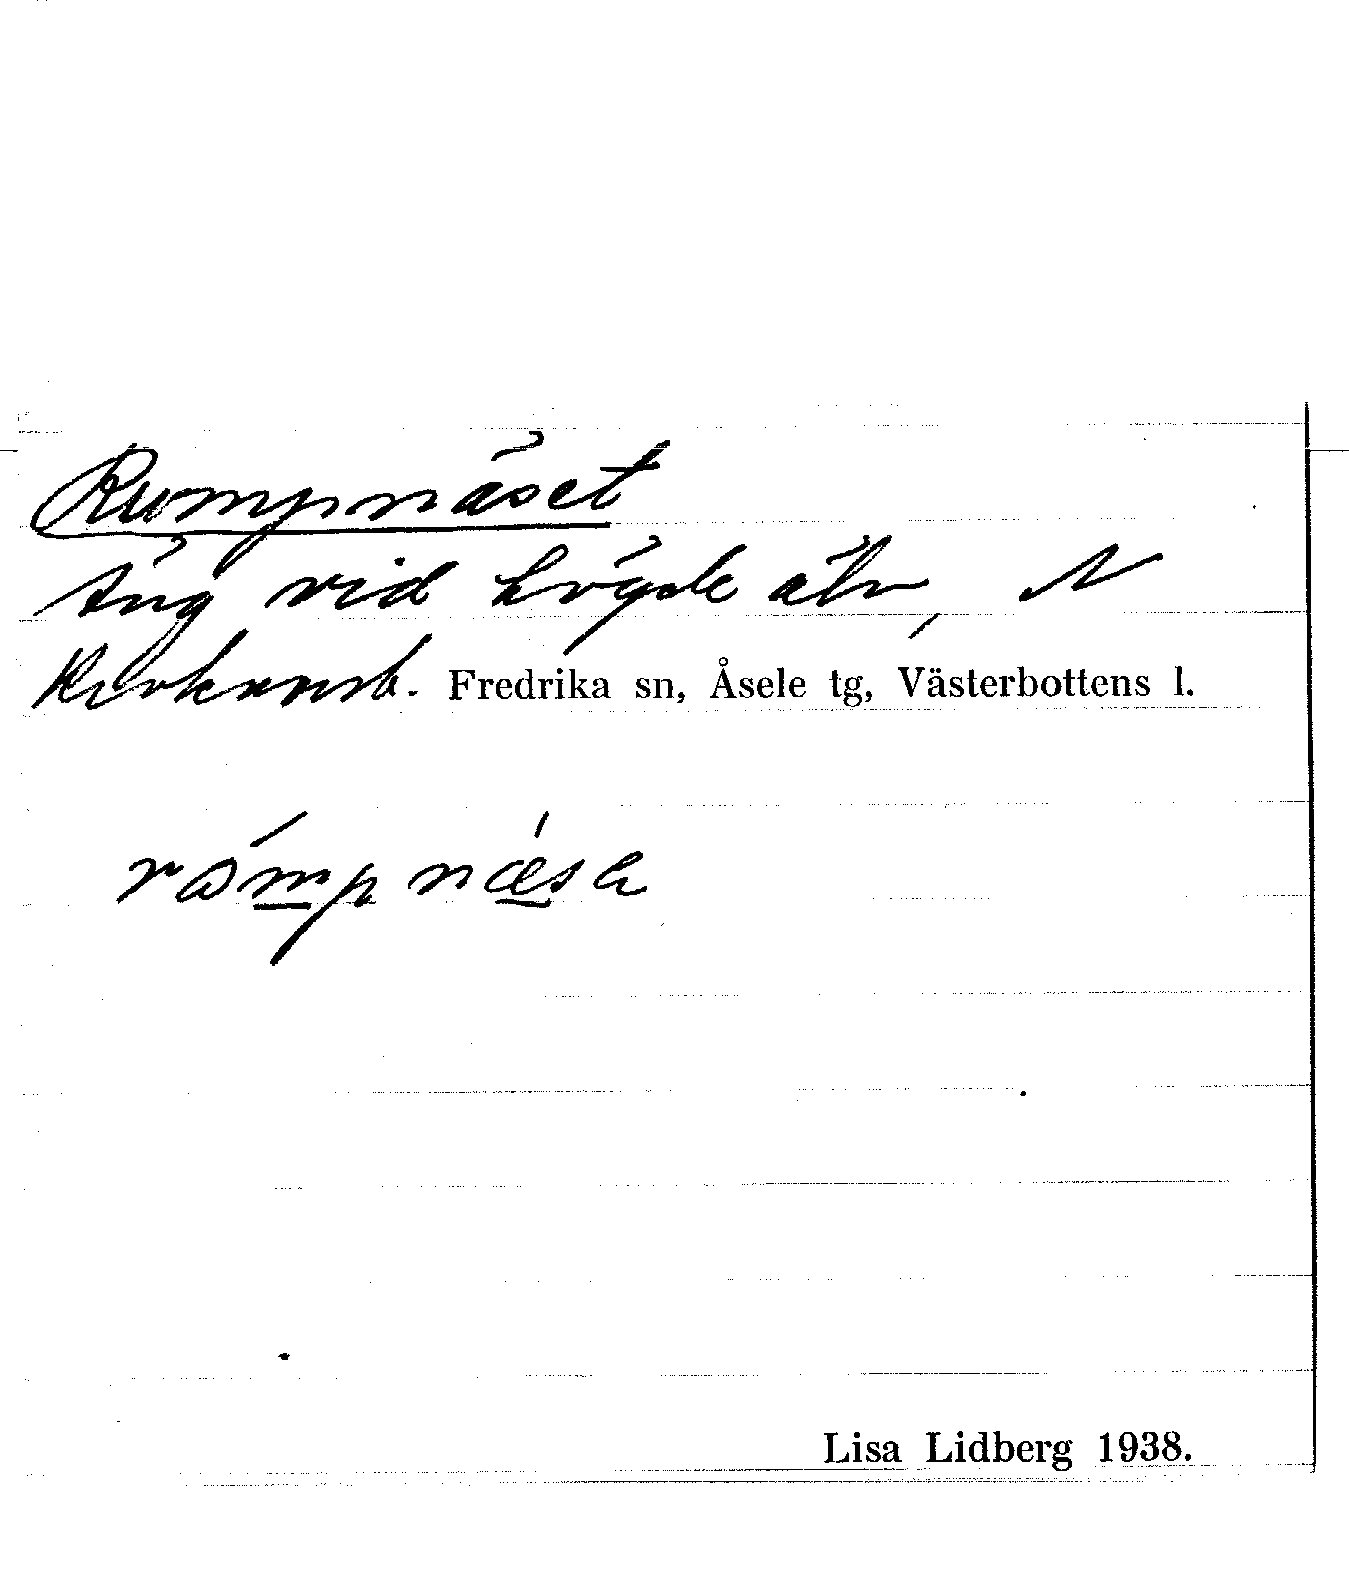 Rumpnäset
Äng vid Lögde älv, N
Fredrika sn, Åsele tg, Västerbottens l.
rɷ́mpnǽsə
Lisa Lidberg 1938.